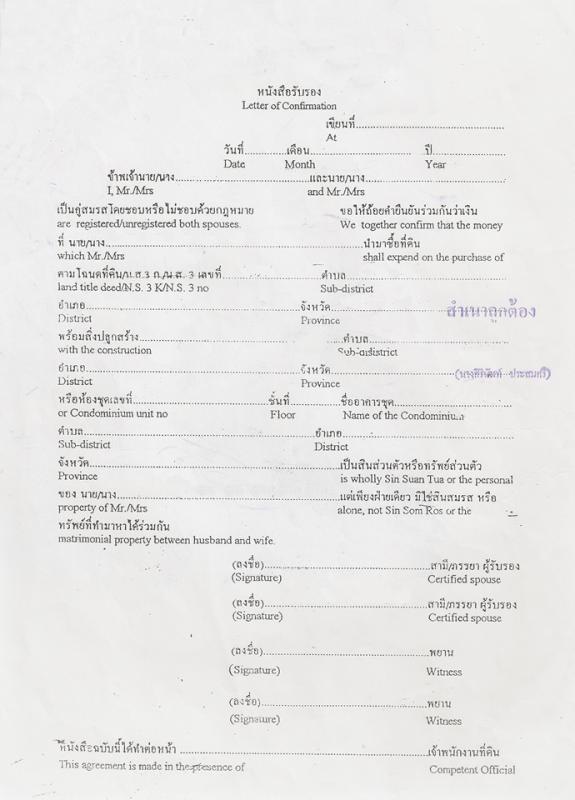 หนังสือรับรอง
Letter of Confirmation
เขียนที่..........
At
วันที่..........เดือน..........ปี..........
Date Month Year
ข้าพเจ้านาย/นาง..........และนาย/นาง..........
I, Mr./Mrs and Mr./Mrs
เป็นคู่สมรสโดยชอบหรือไม่ชอบด้วยกฎหมาย ขอให้ถ้อยคำยืนยันร่วมกันว่าเงิน
are registered/unregistered both spouses. We together confirm that the money
ที่ นาย/นาง..........นำมาซื้อที่ดิน
which Mr./Mrs shall expend on the purchase of
ตามโฉนดที่ดิน/น.ส.3 ก./น.ส. 3 เลขที่..........ตำบล..........
land title deed/N.S. 3 K/N.S. 3 no Sub-district
อำเภอ..........จังหวัด..........
District Province
สำเนาถูกต้อง
พร้อมสิ่งปลูกสร้าง..........ตำบล..........
with the construction Sub-district
อำเภอ..........จังหวัด..........
District Province
หรือห้องชุดเลขที่..........ชั้นที่..........ชื่ออาคารชุด..........
or Condominium unit no Floor Name of the Condominium
ตำบล..........อำเภอ..........
Sub-district District
จังหวัด..........เป็นสินส่วนตัวหรือทรัพย์ส่วนตัว
Province is wholly Sin Suan Tua or the personal
ของ นาย/นาง..........แต่เพียงฝ่ายเดียว มิใช่สินสมรส หรือ
property of Mr./Mrs alone, not Sin Som Ros or the
ทรัพย์ที่ทำมาหาได้ร่วมกัน
matrimonial property between husband and wife.
(ลงชื่อ)..........สามี/ภรรยา ผู้รับรอง
(Signature) Certified spouse
(ลงชื่อ)..........สามี/ภรรยา ผู้รับรอง
(Signature) Certified spouse
(ลงชื่อ)..........พยาน
(Signature) Witness
(ลงชื่อ)..........พยาน
(Signature) Witness
หนังสือฉบับนี้ได้ทำต่อหน้า ..........เจ้าพนักงานที่ดิน
This agreement is made in the presence of Competent Official